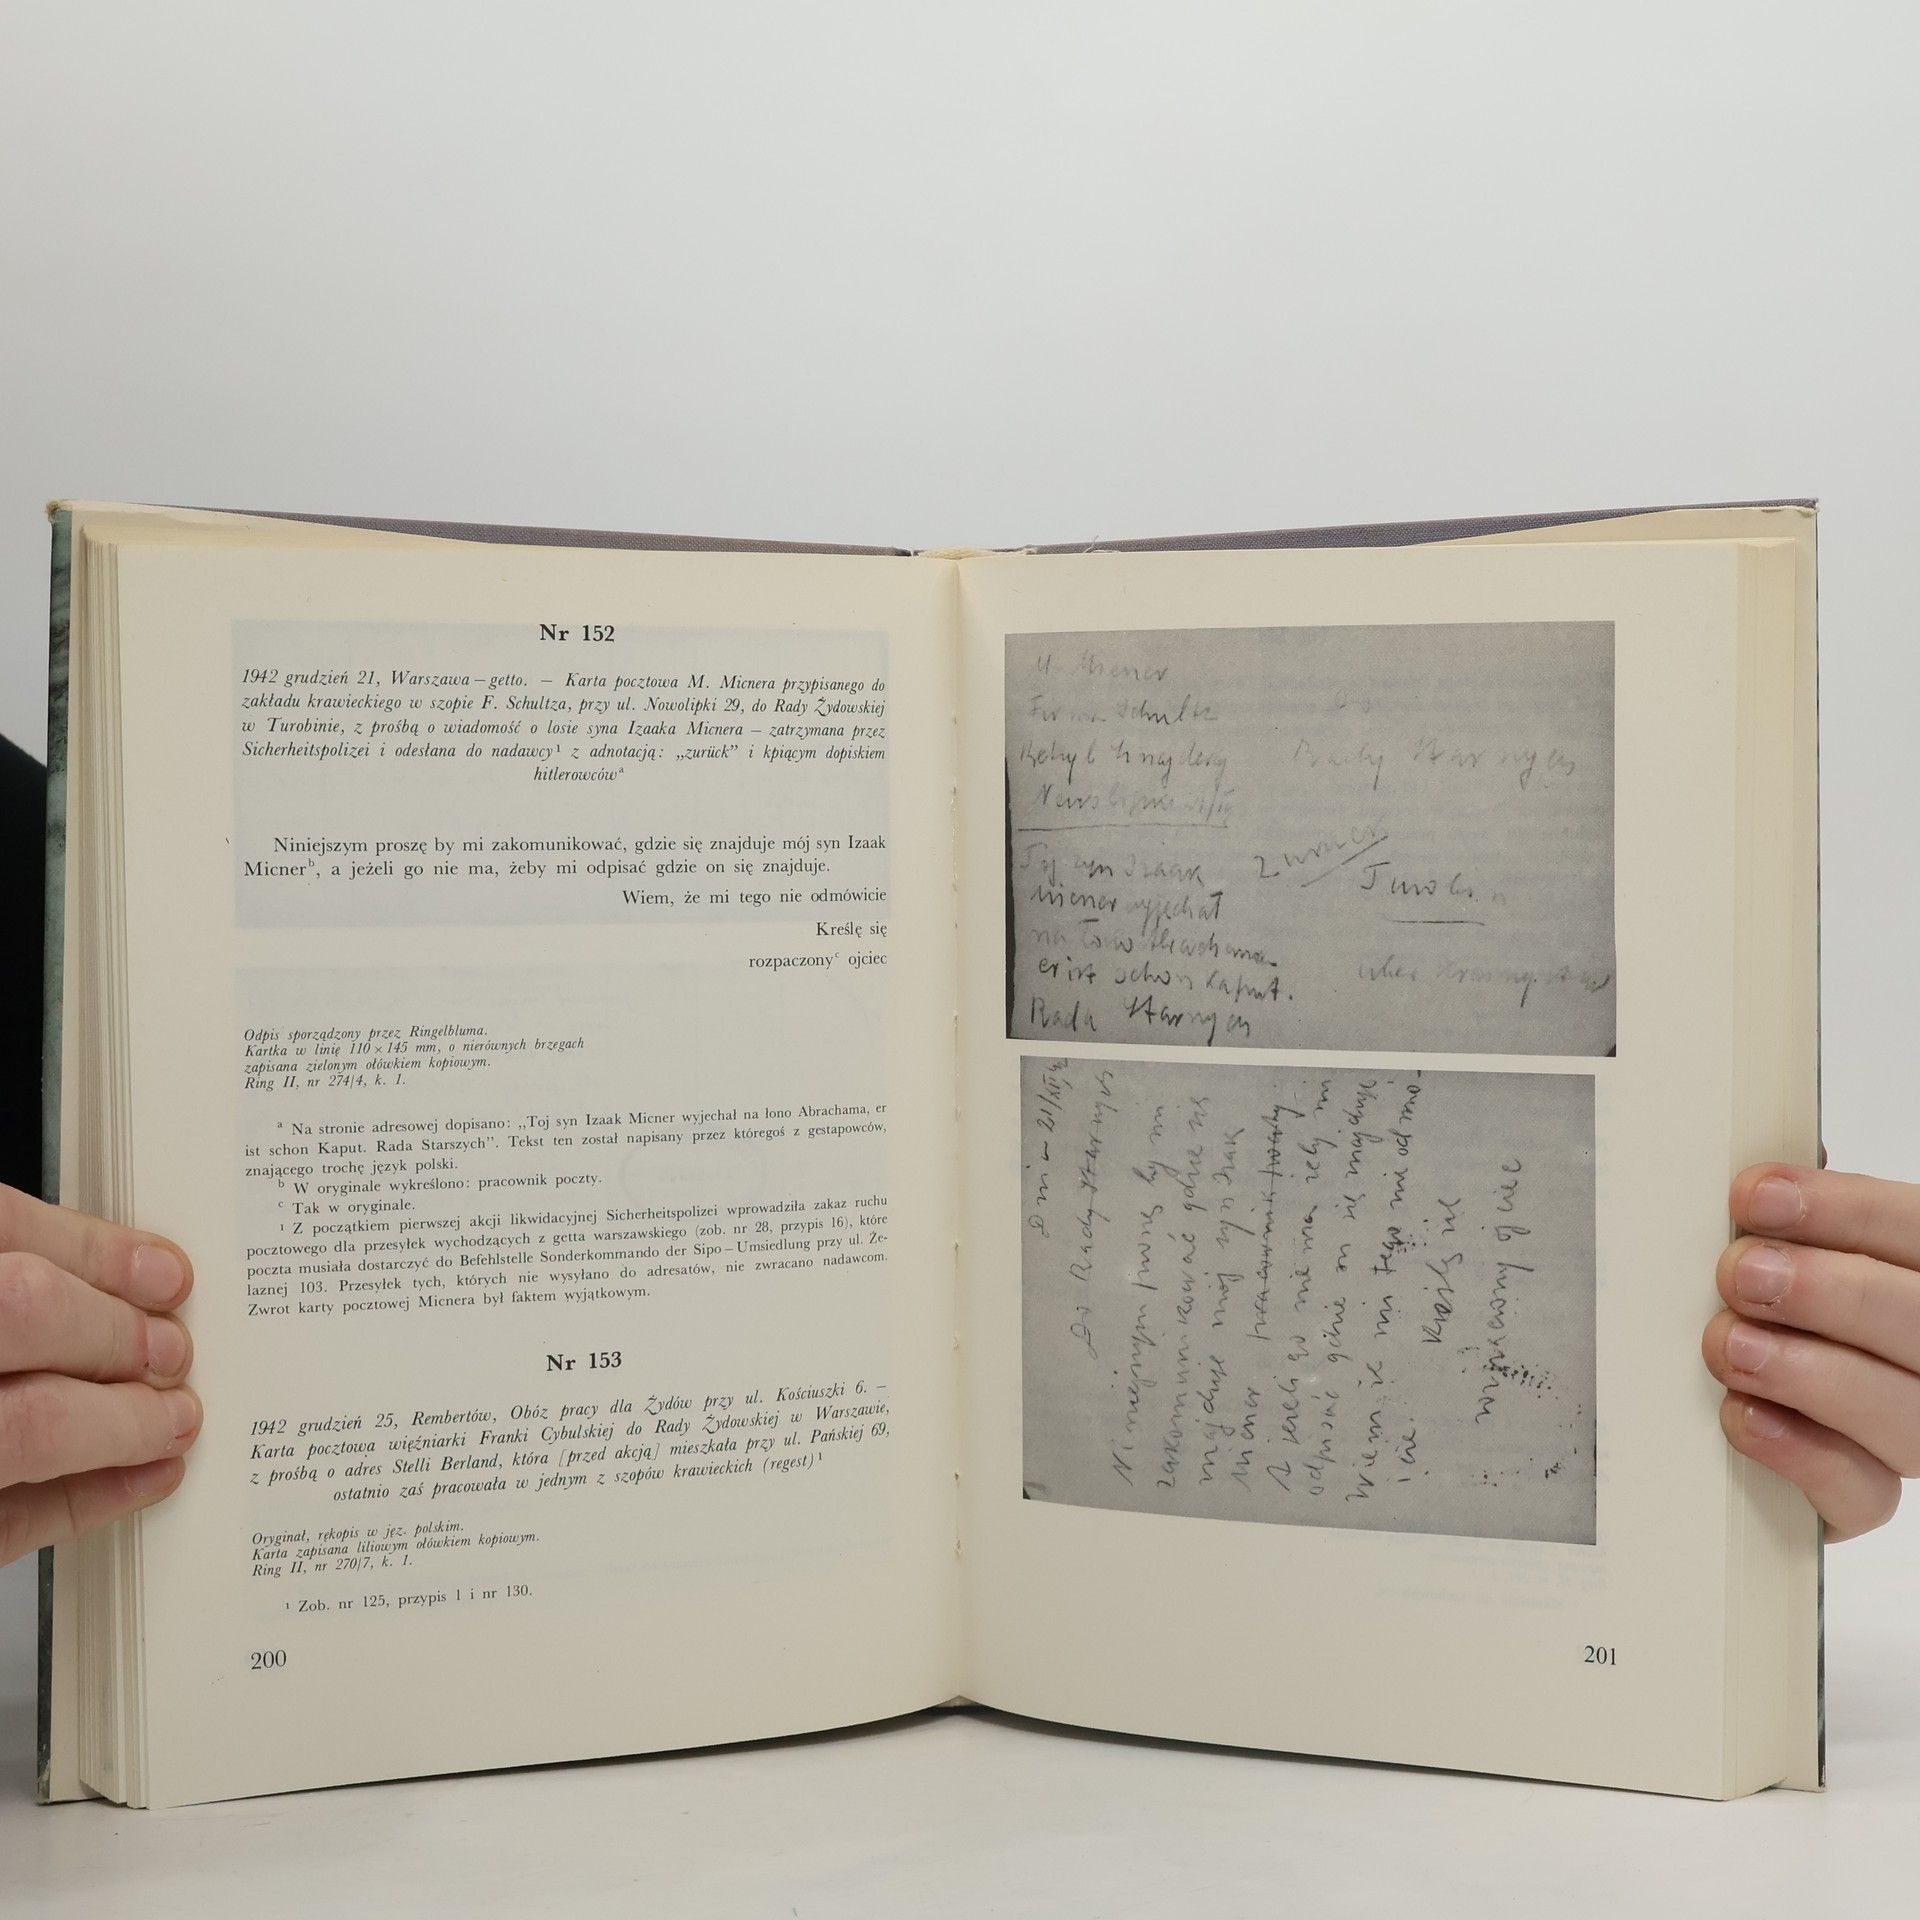 Nr 152
1942 grudzień 21, Warszawa – getto. – Karta pocztowa M. Micnera przypisanego do
zakładu krawieckiego w szopie F. Schultza, przy ul. Nowolipki 29, do Rady Żydowskiej
w Turobinie, z prośbą o wiadomość o losie syna Izaaka Micnera – zatrzymana przez
Sicherheitspolizei i odesłana do nadawcy¹ z adnotacją: „zurück” i kpiącym dopiskiem
hitlerowcówᵃ
Niniejszym proszę by mi zakomunikować, gdzie się znajduje mój syn Izaak
Micnerᵇ, a jeżeli go nie ma, żeby mi odpisać gdzie on się znajduje.
Wiem, że mi tego nie odmówicie
Kreślę się
rozpaczonyᶜ ojciec
Odpis sporządzony przez Ringelbluma.
Kartka w linię 110 × 145 mm, o nierównych brzegach
zapisana zielonym ołówkiem kopiowym.
Ring II, nr 274/4, k. 1.
ᵃ Na stronie adresowej dopisano: „Toj syn Izaak Micner wyjechał na łono Abrachama, er
ist schon Kaput. Rada Starszych”. Tekst ten został napisany przez któregoś z gestapowców,
znającego trochę język polski.
ᵇ W oryginale wykreślono: pracownik poczty.
ᶜ Tak w oryginale.
¹ Z początkiem pierwszej akcji likwidacyjnej Sicherheitspolizei wprowadziła zakaz ruchu
pocztowego dla przesyłek wychodzących z getta warszawskiego (zob. nr 28, przypis 16), które
poczta musiała dostarczyć do Befehlstelle Sonderkommando der Sipo – Umsiedlung przy ul. Że-
laznej 103. Przesyłek tych, których nie wysyłano do adresatów, nie zwracano nadawcom.
Zwrot karty pocztowej Micnera był faktem wyjątkowym.
Nr 153
1942 grudzień 25, Rembertów, Obóz pracy dla Żydów przy ul. Kościuszki 6. –
Karta pocztowa więźniarki Franki Cybulskiej do Rady Żydowskiej w Warszawie,
z prośbą o adres Stelli Berland, która [przed akcją] mieszkała przy ul. Pańskiej 69,
ostatnio zaś pracowała w jednym z szopów krawieckich (regest)¹
Oryginał, rękopis w jęz. polskim.
Karta zapisana liliowym ołówkiem kopiowym.
Ring II, nr 270/7, k. 1.
¹ Zob. nr 125, przypis 1 i nr 130.
200
Micner
Schultz
Toj syn Izaak
Micner wyjechał
na łono Abrachama
er ist schon Kaput.
Rada Starszych
Niniejszym proszę by mi
zakomunikować gdzie się
znajduje mój syn Izaak
Micner
A jeżeli go nie ma żeby mi
odpisać gdzie on się znajduje
Wiem że mi tego nie odmó-
icie.
Kreślę się
ojciec
201